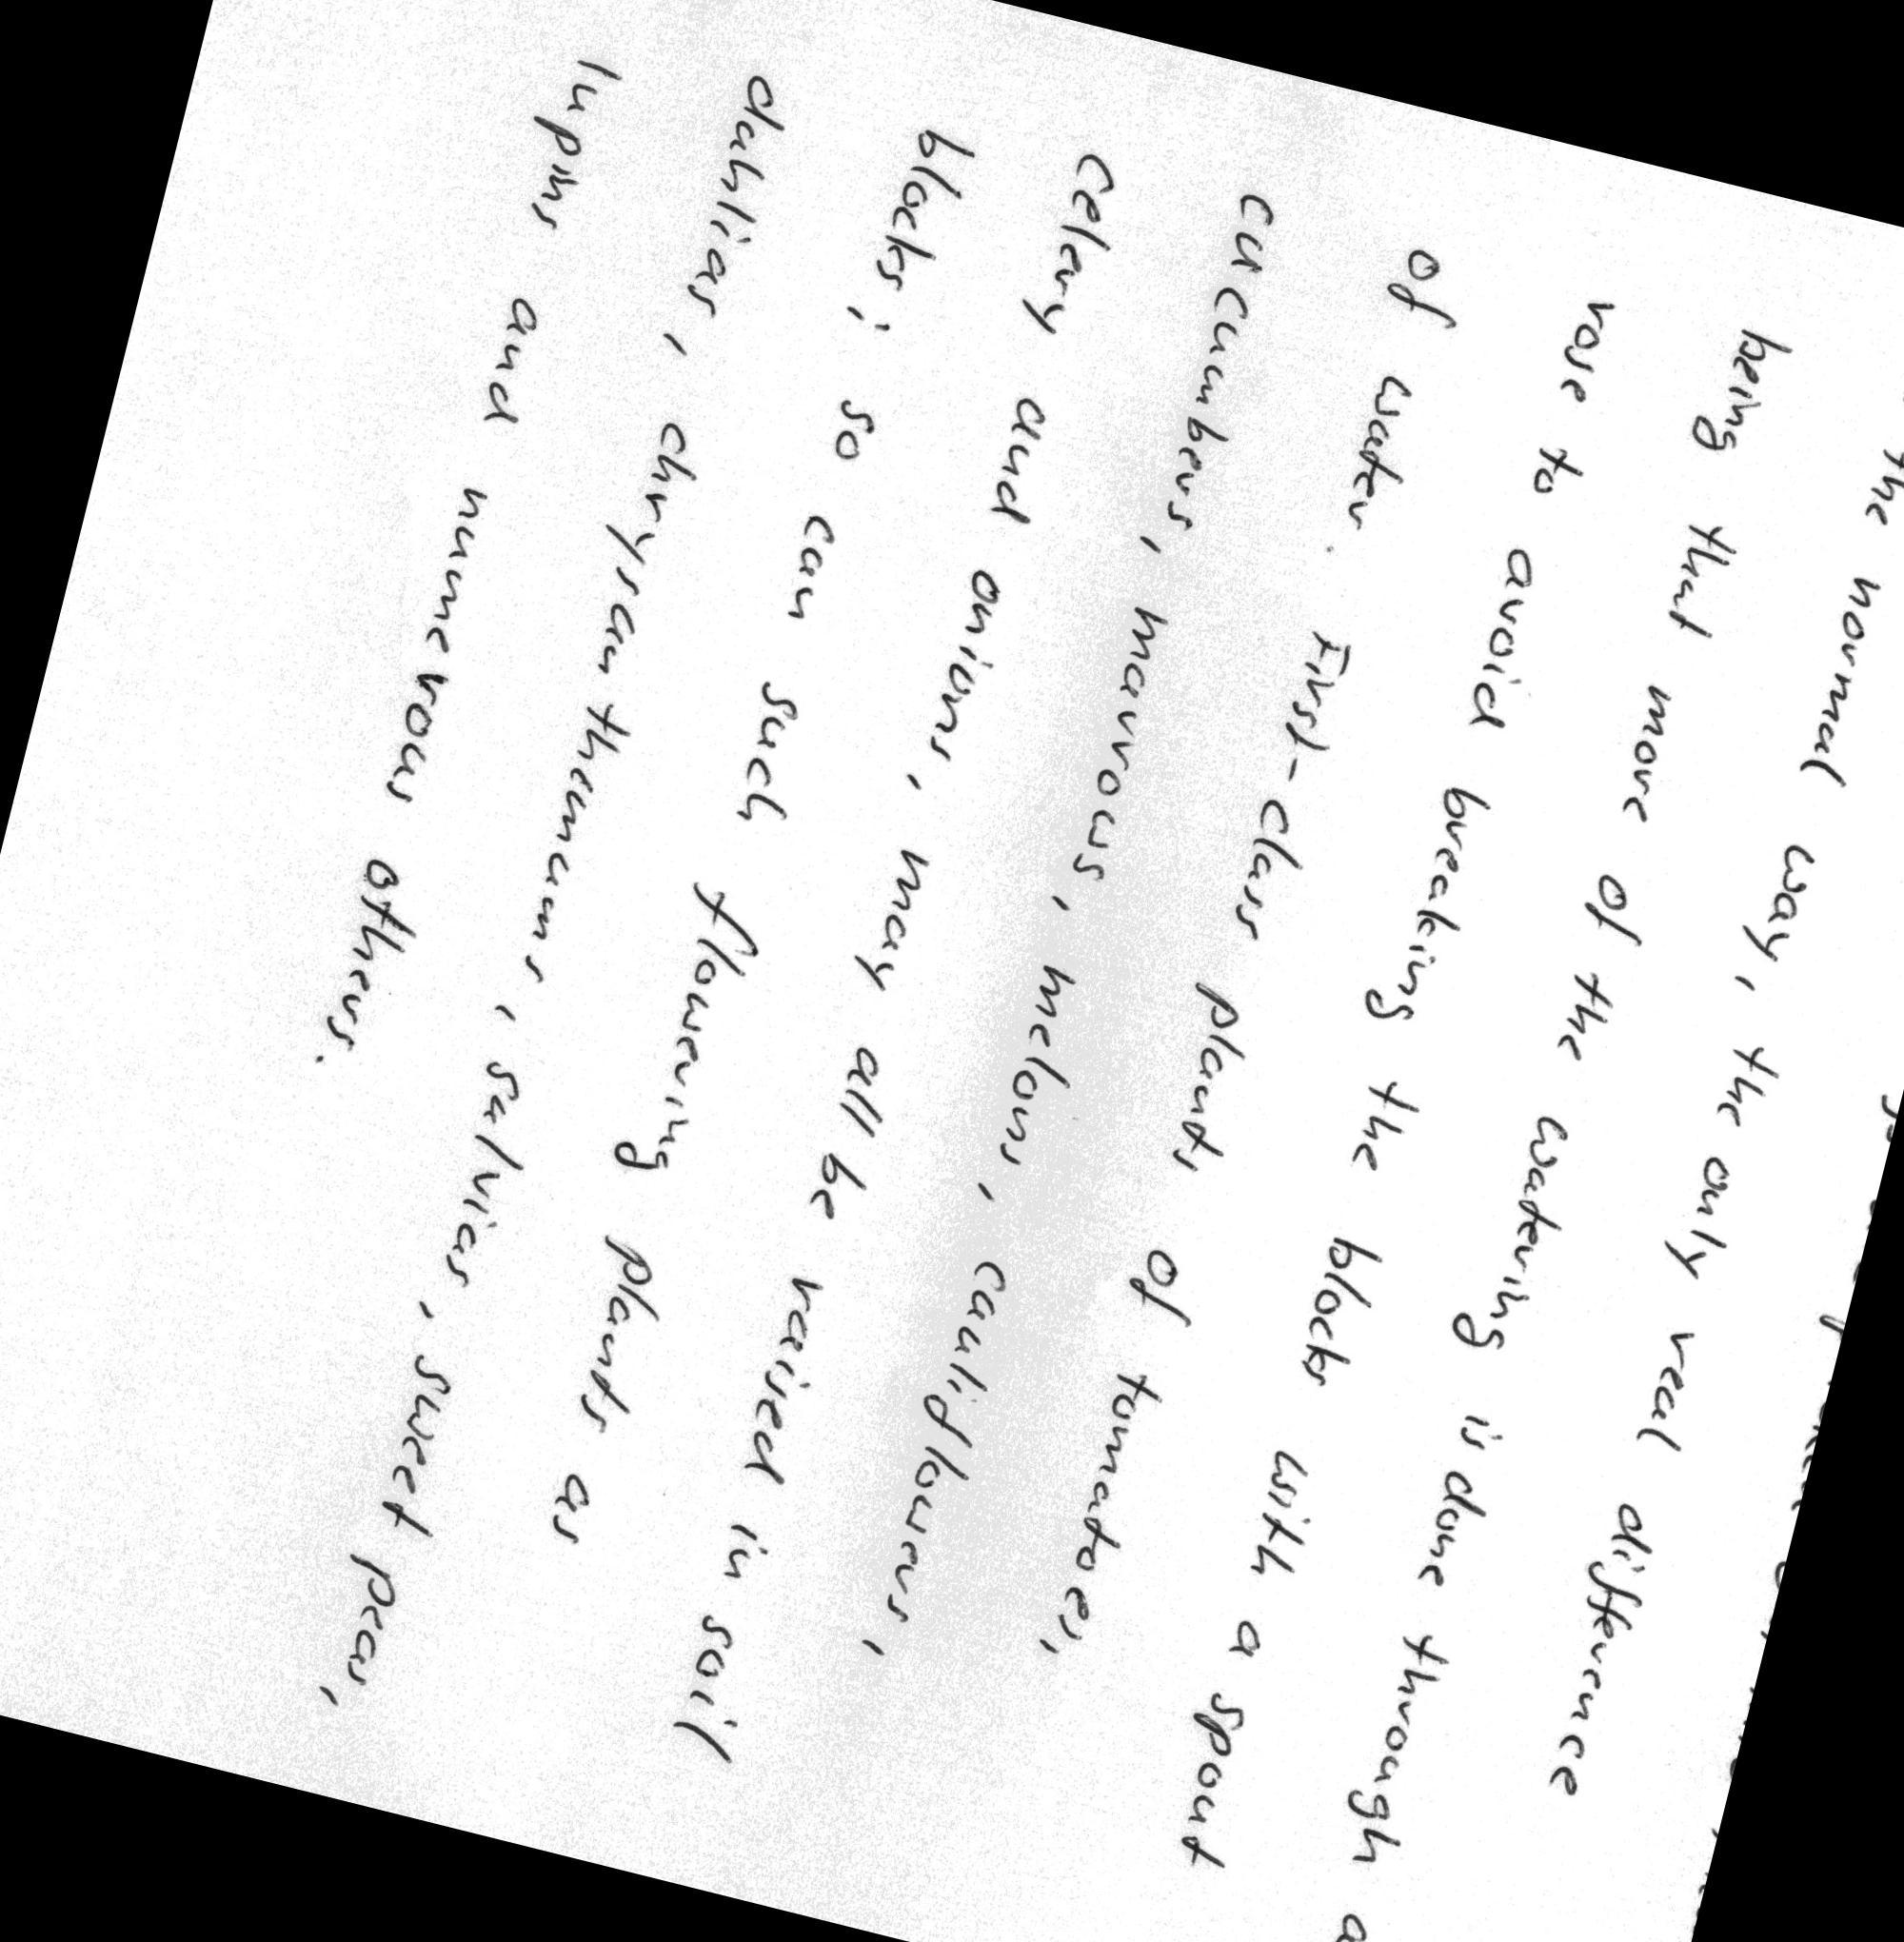 the normal way, the only real difference
being that more of the watering is done through a
rose to avoid breaking the blocks with a spout
of water. First-class plants of tomatoes,
cucumbers, marrows, melons, cauliflowers,
celery and onions, may all be raised in soil
blocks; so can such flowering plants as
dahlias, chrysanthemums, salvias, sweet peas,
lupins and numerous others.